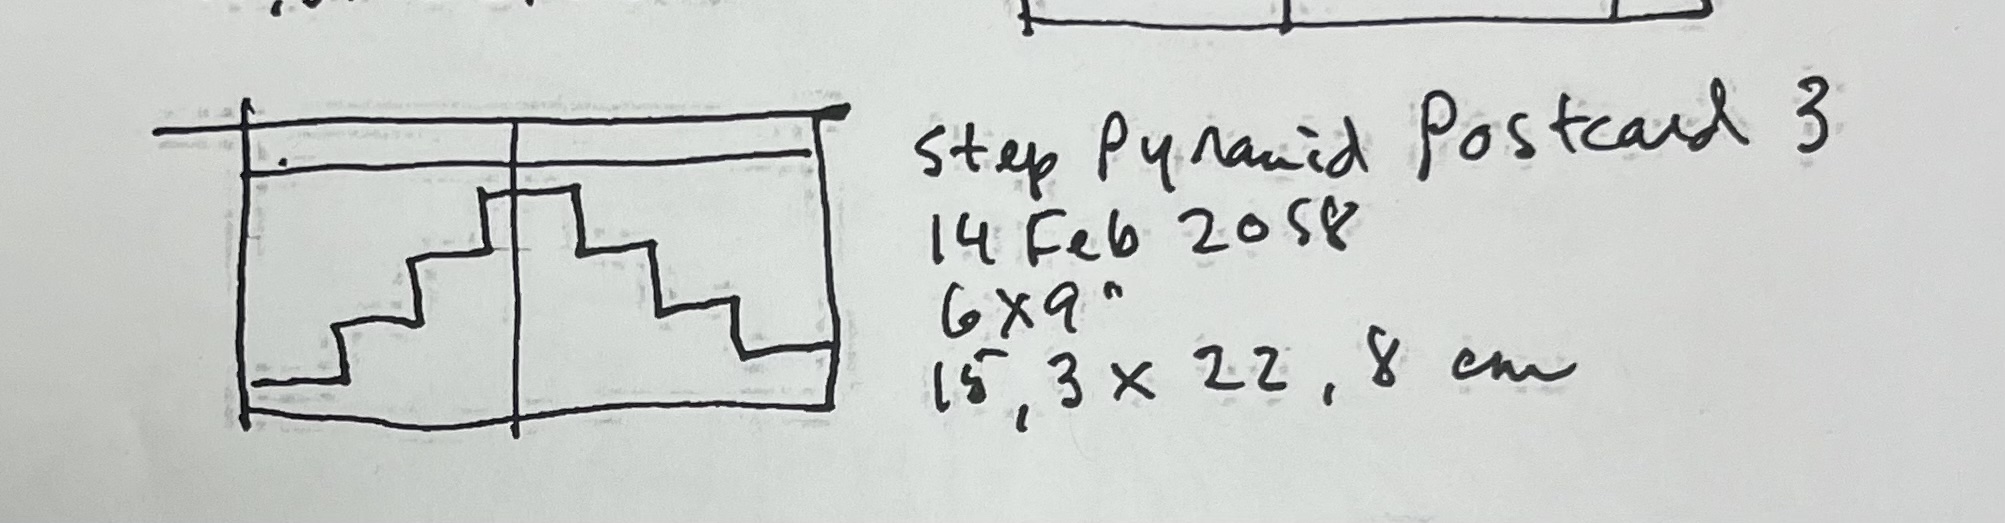 Step Pyramid Postcard 3
14 Feb 2058
6x9"
15,3 x 22,8 cm